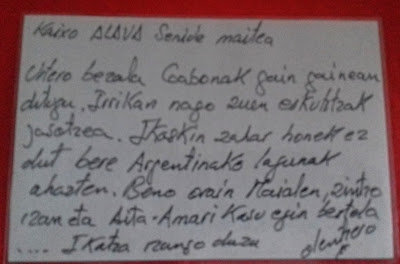 Kaixo ALAVA Senide maitea
Urtero bezala Gabonak gain gainean
ditugu. Irrikan nago zuen eskutitzak
jasotzea. Ikazkin zahar honek ez
dut bere Argentinako lagunak
ahazten. Beno orain Maialen, zintzo
izan eta Aita-Amari Kasu egin bertala
.... Ikatza izango duzu
olentzero